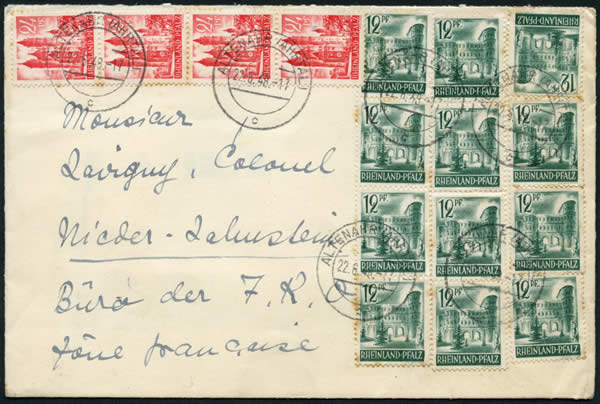 24 PF 24 PF 24 PF 24 PF 12 PF. 12 PF. 12 PF.
RHEINLAND-PFALZ
ALTENAHR (AHRTAL)
22.6.48.-17
c
Monsieur
Lavigny, Colonel
Nieder-Lahnstein
Büro der F. K. O
Zône française
12 PF. 12 PF. 12 PF.
RHEINLAND-PFALZ RHEINLAND-PFALZ RHEINLAND-PFALZ
12 PF. 12 PF. 12 PF.
RHEINLAND-PFALZ RHEINLAND-PFALZ RHEINLAND-PFALZ
ALTENAHR
22.6.
12 PF. 12 PF. 12 PF.
RHEINLAND-PFALZ RHEINLAND-PFALZ RHEINLAND-PFALZ